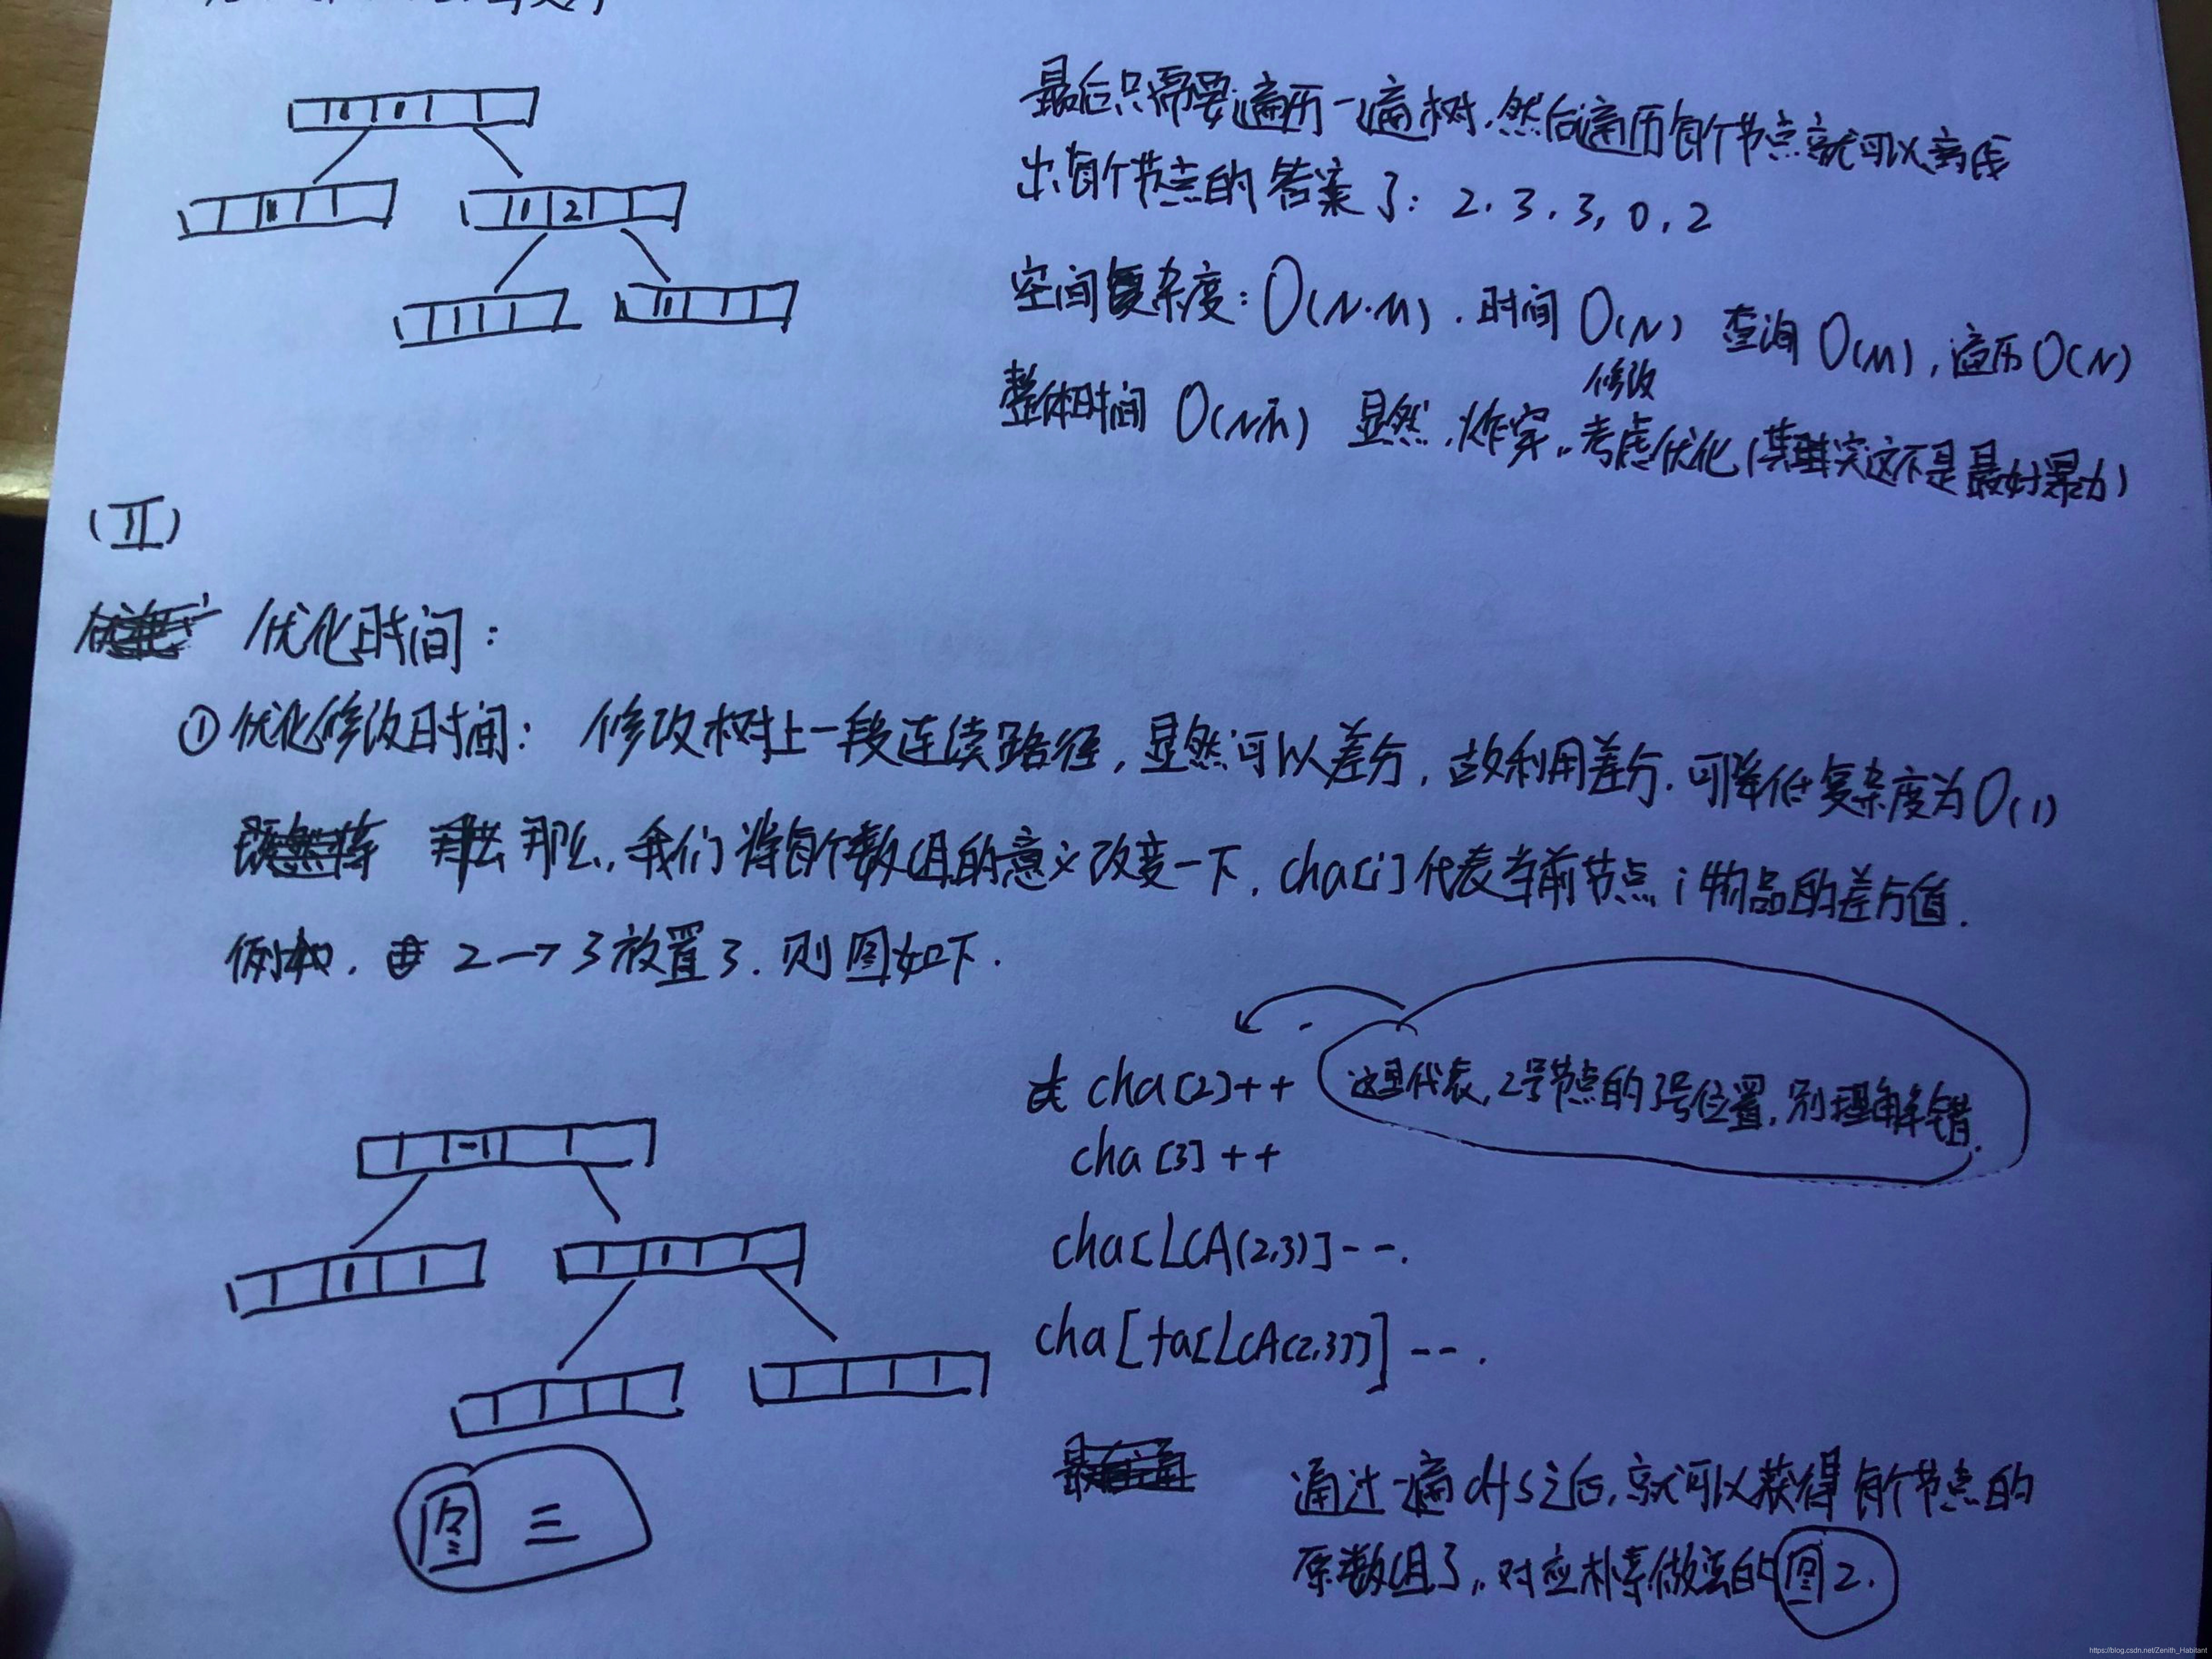 最后只需要遍历一遍树,然后遍历每个节点就可以离线
出每个节点的答案了: 2, 3, 3, 0, 2
空间复杂度: O(N·M). 时间 O(N) 查询 O(M), 遍历 O(N)
修改
整体时间 O(N²) 显然,炸穿。考虑优化(其实这不是最好暴力)
1 1
1
1 2
1
(II)
优化时间:
① 优化修改时间: 修改树上一段连续路径, 显然可以差分, 故利用差分. 可降低复杂度为O(1)
那么, 我们将每个数组的意义改变一下, cha[i]代表当前节点 i 物品的差分值.
例如, 2→3 放置3. 则图如下.
cha[2]++
这里代表, 2号节点的3号位置, 别理解错.
cha[3]++
cha[LCA(2,3)]--.
cha[fa[LCA(2,3)]]--.
-1
1
1
图三
通过一遍dfs之后, 就可以获得每个节点的
原数组了, 对应朴素做法的图2.
https://blog.csdn.net/Zenith_Habitant